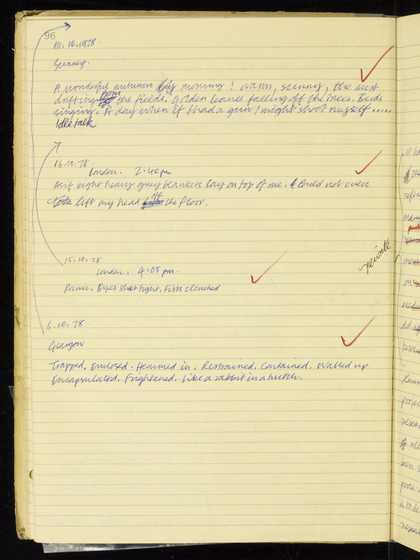 96
Surrey.
A wonderful autumn day morning! warm, sunny, the mist
drifting from the fields. Golden leaves falling off the trees. Birds
singing. A day when if I had a gun I might shoot myself.....
Idle talk
16.11.78
London. 2.40pm
As if eight heavy grey blankets lay on top of me. I could not even
lift my head off the floor.
15.10.78
London. 4.05 pm.
Panic. Eyes shut tight, Fists clenched
6.10.78
Glasgow
Trapped. Enclosed. Hemmed in. Restrained. Contained. Walled up
Encapsulated. Frightened. Like a rabbit in a hutch.